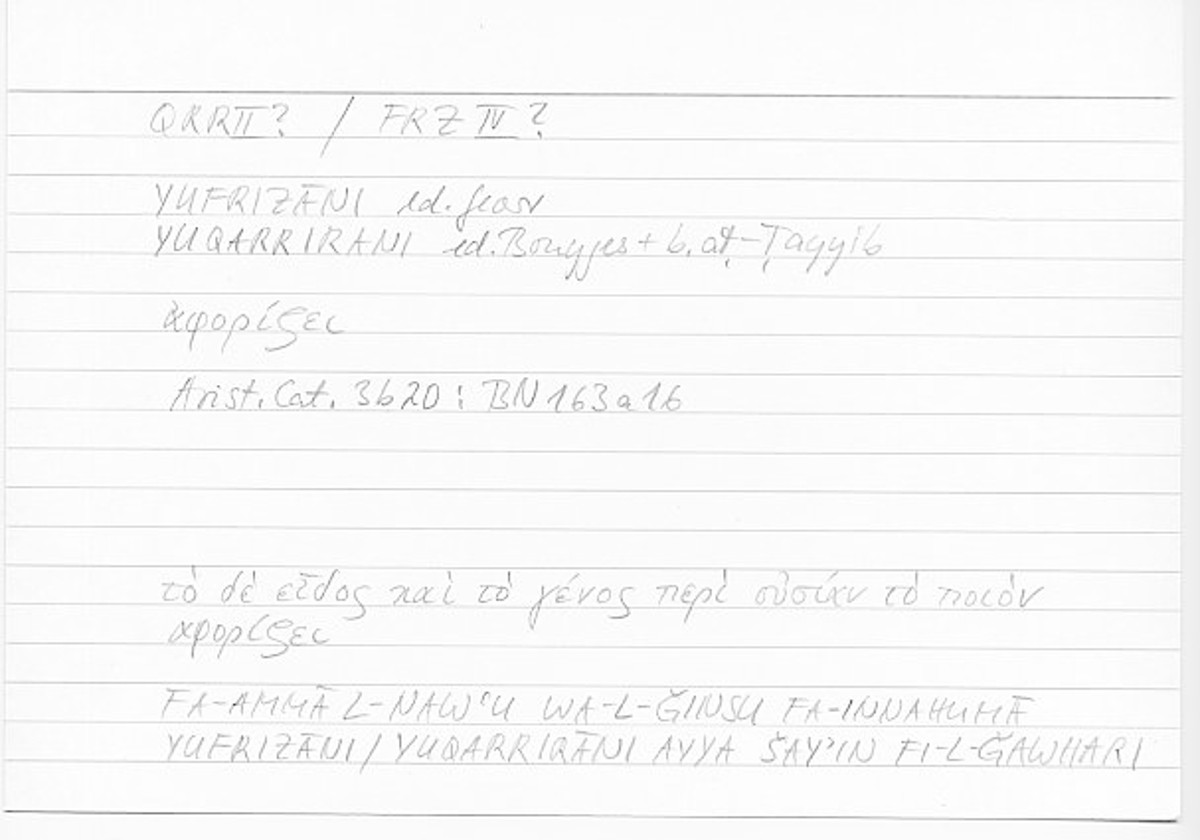 QRR II? / FRZ IV?
YUFRIZĀNI ed. Georr
YUQARRIRANI ed. Bouyges + b. aṭ-Ṭayyib
ἀφορίζει
Arist. Cat. 3b20 : BN 163a16
τὸ δὲ εἶδος καὶ τὸ γένος περὶ οὐσίαν τὸ ποιὸν
ἀφορίζει
FA-AMMĀ L-NAWʿU WA-L-ǦINSU FA-INNAHUMĀ
YUFRIZĀNI / YUQARRIRĀNI AYYA ŠAYʾIN FI-L-ǦAWHARI